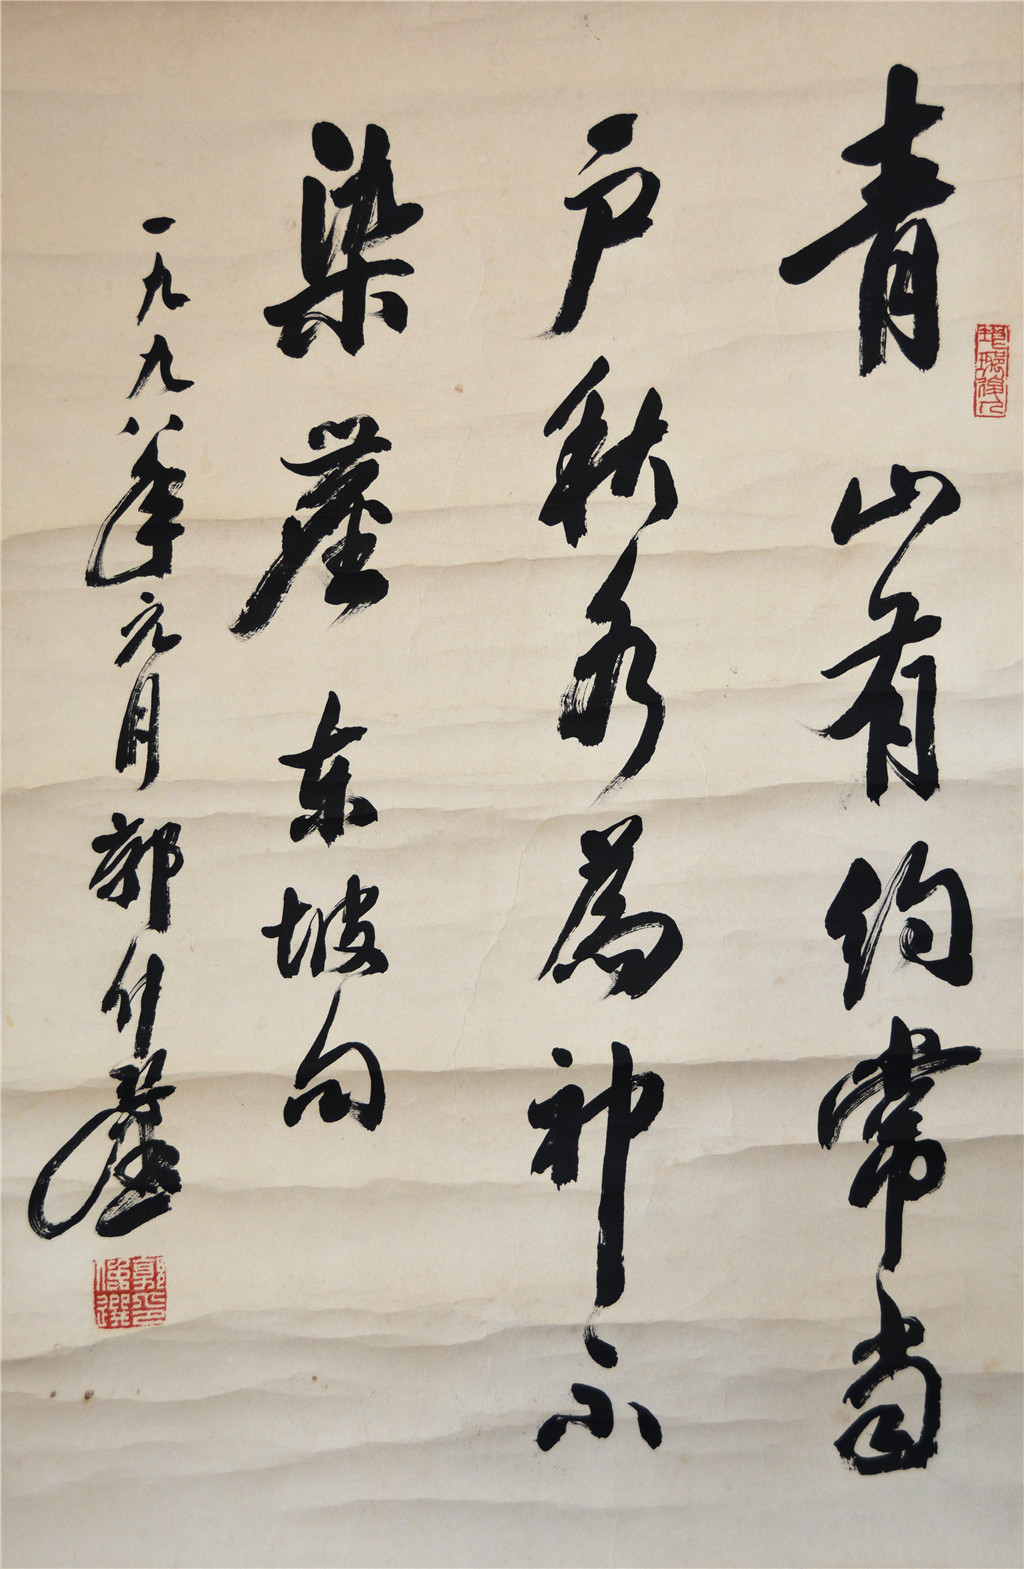 青山有约常当
户秋水為神不
染塵 东坡句
一九九八年元月 郭